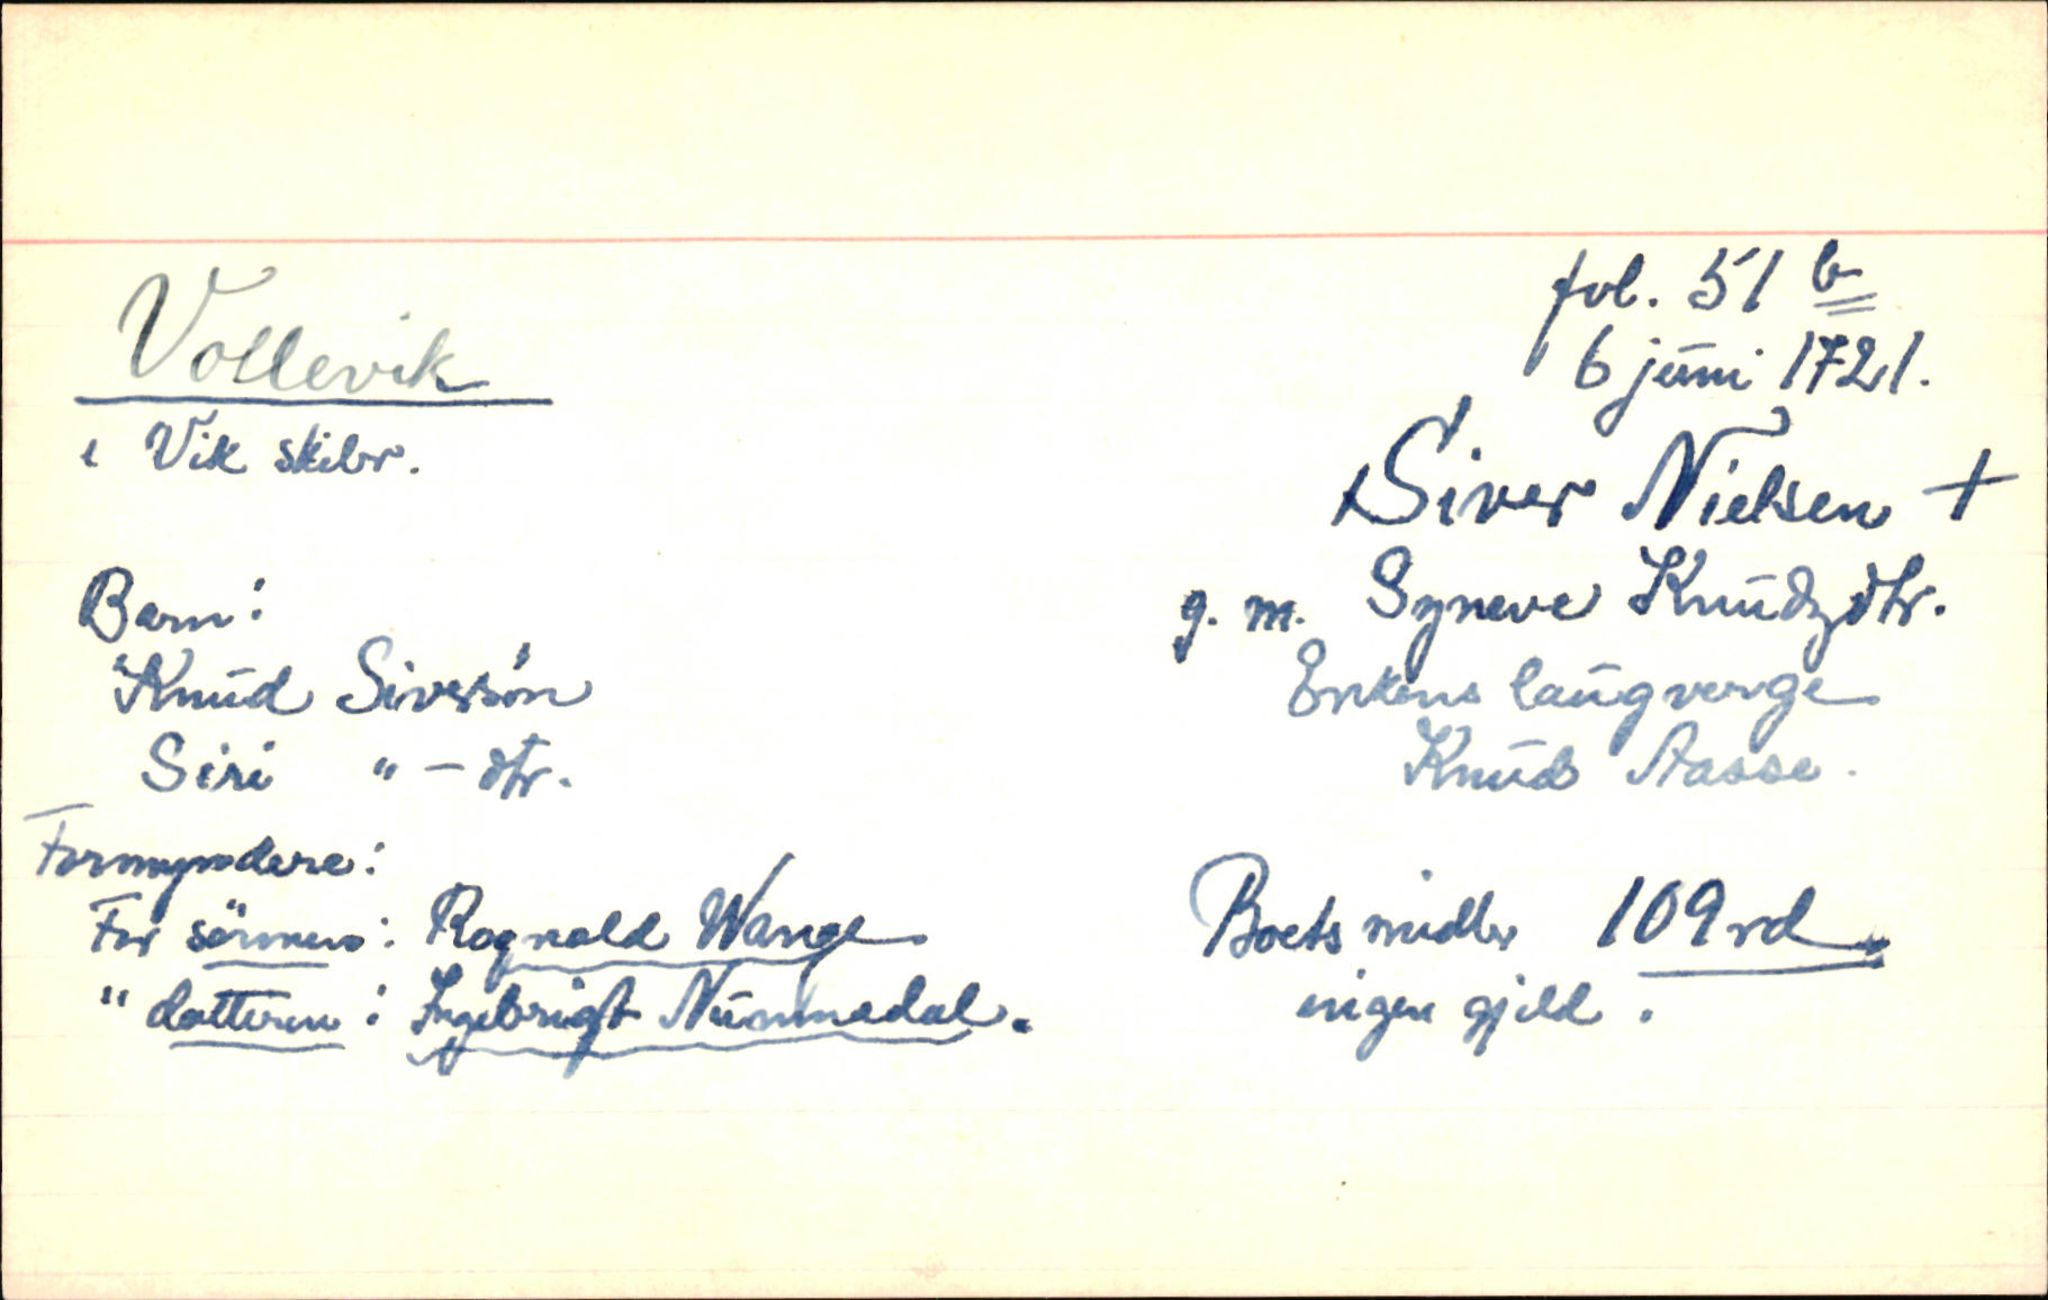 Vollevik
i Vik skibr.
fol. 51 b
6 juni 1721.
Siver Nielsen +
g. m. Syneve Knudzdtr.
Enkens laugverge
Knud Aasse.
Barn:
Knud Siversön
Siri " - dtr.
Formyndere:
For sönnen: Rognald Wange
" datteren: Ingebrigt Nummedal.
Boets midler 109 rd.
ingen gjeld.